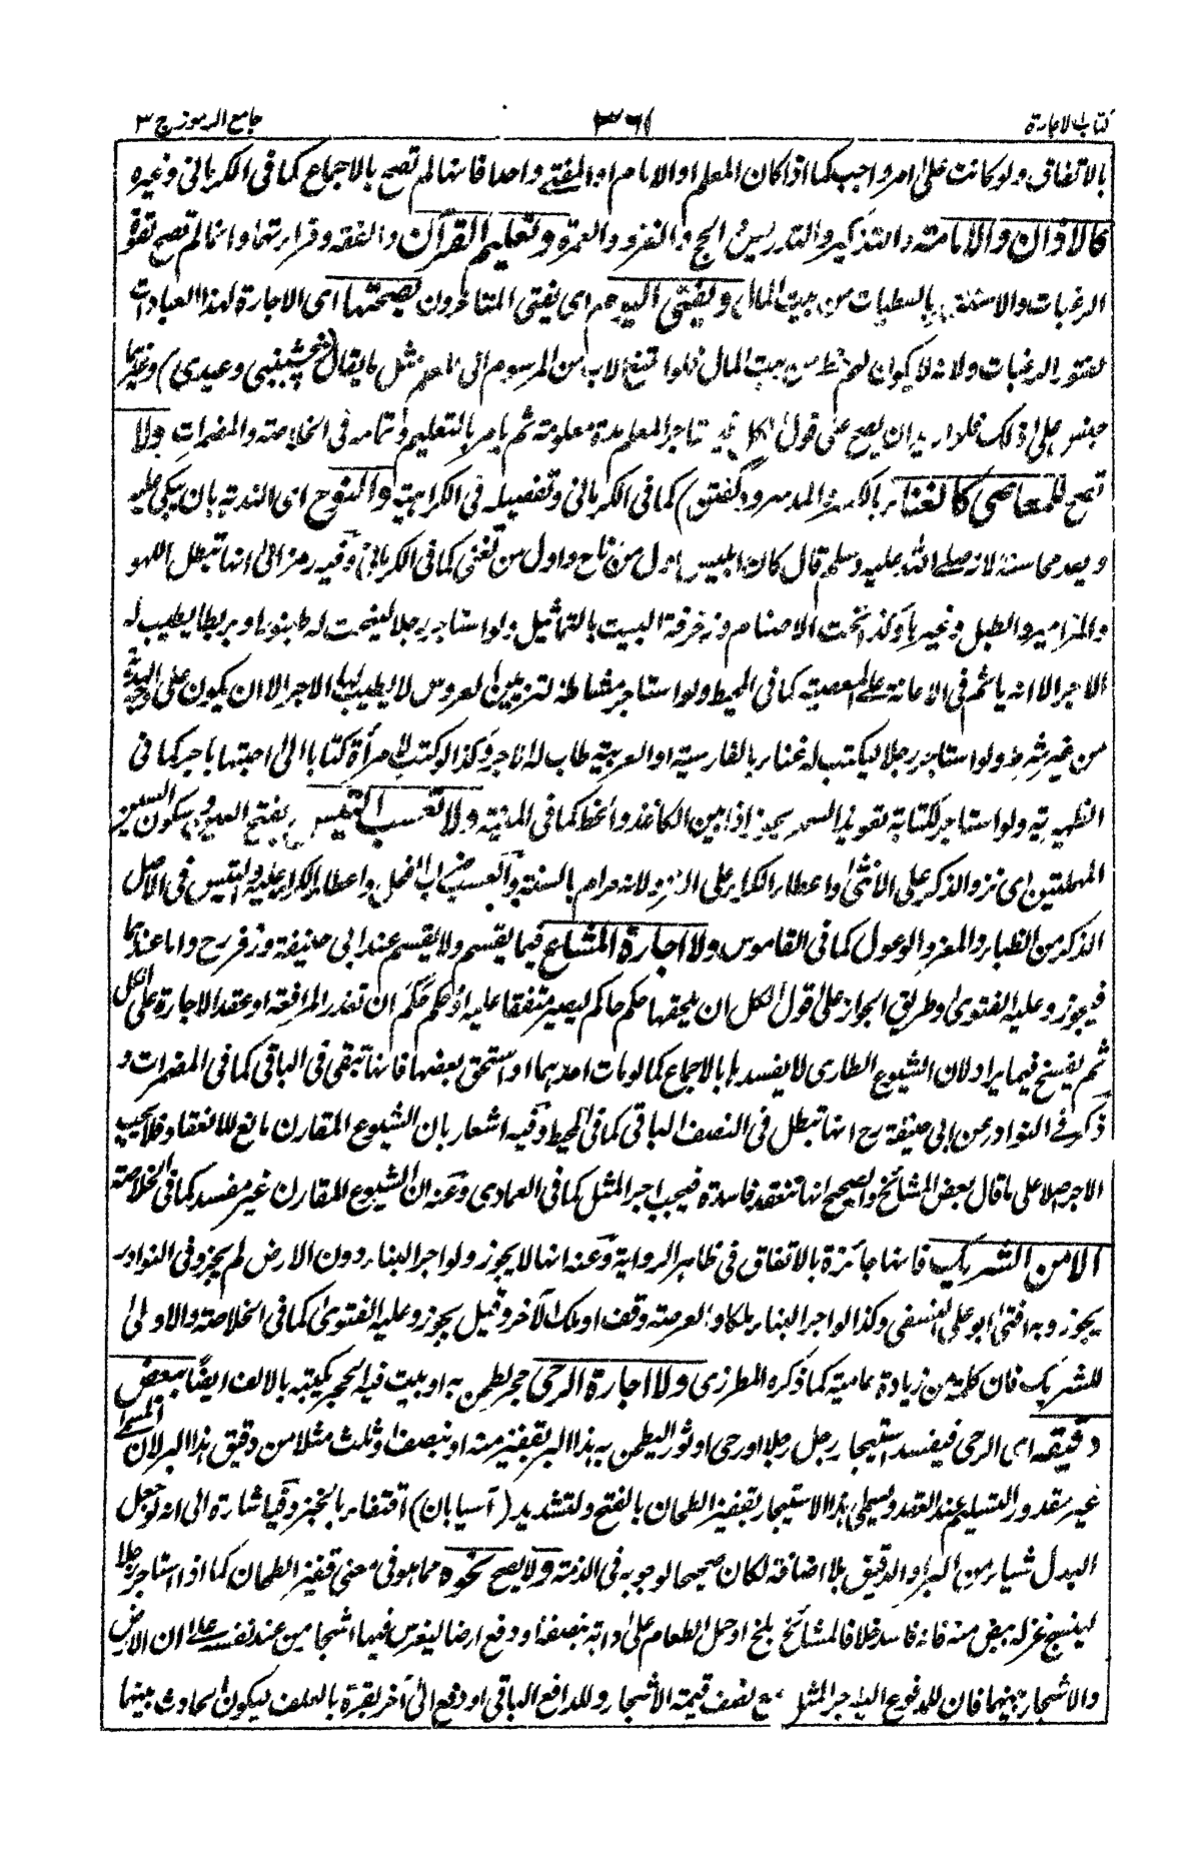 كتاب الاجارة
٣٦١
جامع الرموز ج ٣
بالاتفاق ولو كانت على امر واجب كما اذا كان المعلم او الامام او المفتي واحدا فانها لم تصح بالاجماع كما في الكرماني وغيره
كالاذان والامامة والتذكير والتدريس والحج والغزو والعمرة وتعليم القرآن والفقه وقراءتهما وانما لم تصح لقوة
الرغبات من بيت المال ويفتى اليوم اى يفتى المتاخرون بصحتها اى الاجارة لهذا العبادات
لفتور الرغبات ولانه لا يكون لهم حظ من بيت المال فلو امتنع الاب من المرسوم الى المعلم مثل ما يقال وعيدى) وغيرهما
حبس على ذلك فلو اريد ان يصح على قول الكل تاجر المعلم مدة معلومة ثم يامر بالتعليم وتمامه في الخلاصة والمضمرات ولا
تصح للمعاصى كالغناء بالكسر والمد سرود گفتن) كما في الكرماني وتفصيله في الكراهية والنوح اى الندبة بان يبكى عليه
ويعد محاسنه لانه صلى الله عليه وسلم قال كان ابليس اول من ناح واول من تغنى كما في الكرماني وفيه رمز الى انها تبطل اللهو
والمزامير والطبل وغيرها وكذا نحت الاصنام وزخرفة البيت بالتماثيل ولو استاجر رجلا لينحت له طنبورا او بربطا يطيب له
الاجر الا انه ياثم في الاعانة على المعصية كما في المحيط ولو استاجر مشاطة لتزيين العروس لا يطيب لها الاجر الا ان يكون على وجه الهدية
من غير شرط ولو استاجر رجلا ليكتب له غناء بالفارسية او العربية طاب له الاجر وكذا لو كتب لامرأة كتابا الى احبتها باجر كما في
الظهيرية ولو استاجر لكتابة تعويذ السحر يجوز اذا بين الكاغذ والخط كما في المنية ولا لعسب التيس بفتح العين وسكون السين
المهملتين اى نزو الذكر على الانثى او اعطاء الكراء على النزو لانه حرام بالسنة والعسب ضراب الفحل واعطاء الكراء عليه والتيس في الاصل
الذكر من الظباء والمعز والوعول كما في القاموس ولا اجارة المشاع فيما يقسم ولا يقسم عند ابى حنيفة وزفر رح واما عندهما
فيجوز وعليه الفتوى وطريق الجواز على قول الكل ان يلحقها حكم حاكم ليصير متفقا عليه او حكم حكم ان تعذر المرافعة او عقد الاجارة على الكل
ثم يفسخ فيما يراد لان الشيوع الطارى لا يفسدها بالاجماع كما لو مات احدهما او استحق بعضها فانها تبقى في الباقى كما في المضمرات و
ذكر في النوادر عن ابى حنيفة رح انها تبطل في النصف الباقى كما في المحيط وفيه اشعار بان الشيوع المقارن مانع للانعقاد فلا يجب
الاجر اصلا على ما قال بعض المشائخ والصحيح انها تنعقد فاسدة فيجب اجر المثل كما في العمادى وعنه ان الشيوع المقارن غير مفسد كما في الخلاصة
الا من الشريك فانها جائزة بالاتفاق في ظاهر الرواية وعنه انها لا يجوز ولو اجر البناء دون الارض لم يجز وفى النوادر
يجوز وبه افتى ابو على النسفى وكذا لو اجر البناء ملكا والعرصة وقف او ملك الآخر وقيل يجوز وعليه الفتوى كما في الخلاصة والاولى
للشريك فان كلمة من زيادة عامية كما ذكره المطرزى ولا اجارة الرحى حجر لطحن به او بيت فيه الحجر يكتبه بالالف ايضا ببعض
دقيقه اى الرحى فيفسد استيجار رجل رجلا او رحى او ثور اليطحن به هذا البر بقفيز منه او بنصف وثلث مثلا من دقيق هذا البر لان المسمى
غير مقدور التسليم عند العقد ويسمى هذا الاستيجار بقفيز الطحان بالفتح والتشديد (آسيابان) اقتفاء بالخبز وفيه اشارة الى انه لو جعل
البدل شيئا من البر او الدقيق بلا اضافة لكان صحيحا لوجوبه في الذمة ولا يصح نحوه مما هو فى معنى قفيز الطحان كما اذا استاجر رجلا
لينسج غزله ببعض منه فانه فاسد خلافا لمشائخ بلخ او حمل الطعام على دابة بنصفه او دفع ارضا ليغرس فيها اشجارا من عند نفسه على ان الارض
والاشجار بينهما فان للمدفوع اليه اجر المثل مع نصف قيمة الاشجار وللدافع الباقى او دفع الى آخر بقرة بالعلف ليكون الحادث بينهما